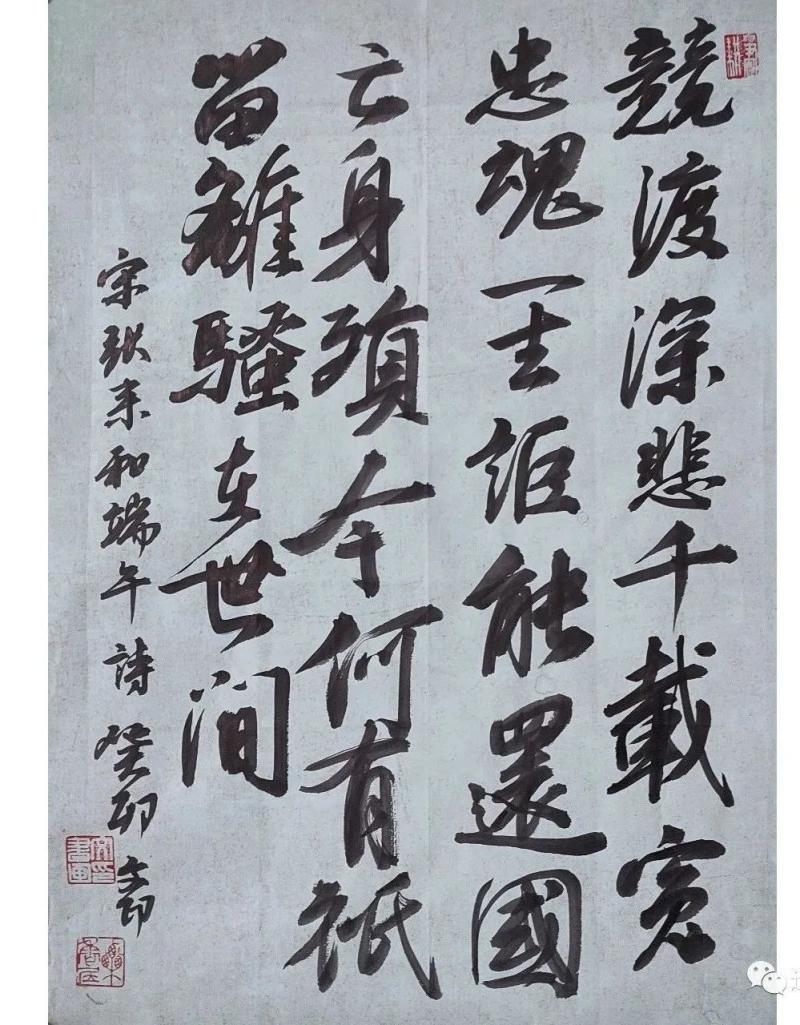 競渡深悲千載冤
忠魂一去詎能還國
亡身殞今何有祇
留離騷在世間
宋張耒和端午詩 癸卯